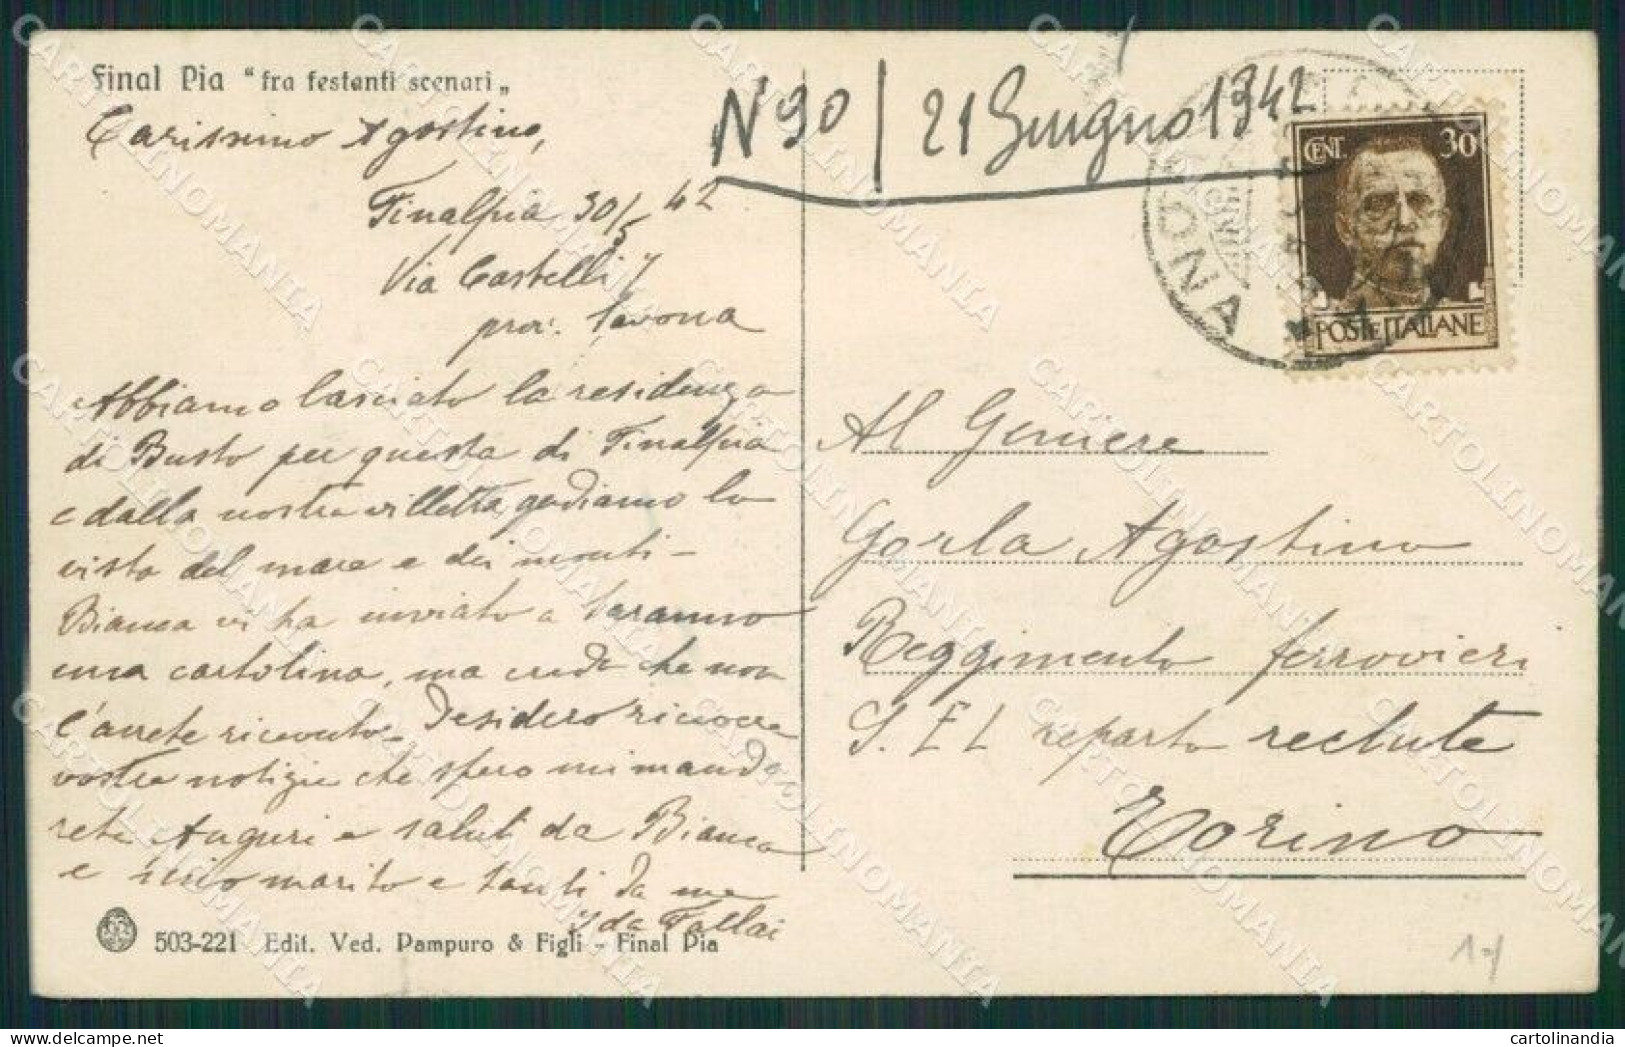 Final Pia "fra festanti scenari„
Carissimo Agostino,
Finalpia 30/5 42
Via Castelli 7
prov. Savona
Abbiamo lasciato la residenza
di Busto per questa di Finalpia
e dalla nostra villetta godiamo la
vista del mare e dei monti -
Bianca vi ha inviato a Taranto
una cartolina, ma credo che non
l'avrete ricevuta. Desidero ricevere
vostre notizie che spero mi mande
rete Auguri e saluti da Bianca
e suo marito e tanti da me
Ida Fallai
503-221 Edit. Ved. Pampuro & Figli - Final Pia
N 90 / 21 Giugno 1942
CENT. 30
POSTE ITALIANE
Al Geniere
Gorla Agostino
Reggimento ferrovieri
reparto reclute
Torino
cartolinandia